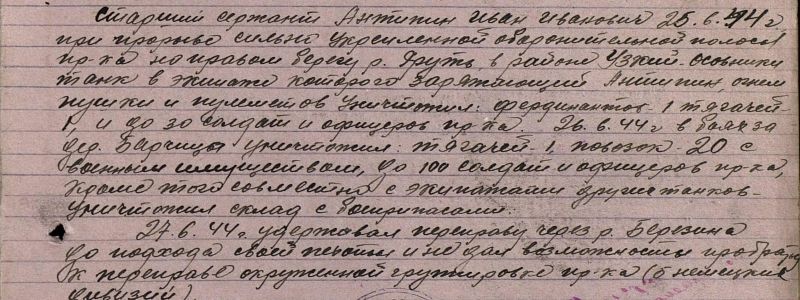 Старший сержант Антипин Иван Иванович 25.6.44 г.
при прорыве сильно укрепленной оборонительной полосы
пр-ка на правом берегу р. Друть, в районе Узкий-Осовники
танк в экипаже которого заряжающий Антипин, огнем
пушки и пулеметов уничтожил: фердинантов-1 тягачей-
1, и до 30 солдат и офицеров пр-ка. 26.6.44 г в боях за
дер. уничтожил: тягачей-1, повозок-20 с
военным имуществом, до 100 солдат и офицеров пр-ка,
кроме того совместно с экипажами других танков-
уничтожил склад с боеприпасами.
27.6.44 г. удерживал переправу через р. Березина
до подхода своей пехоты и не дал возможности
к переправе окруженной группировке пр-ка (6 немецких
дивизий).